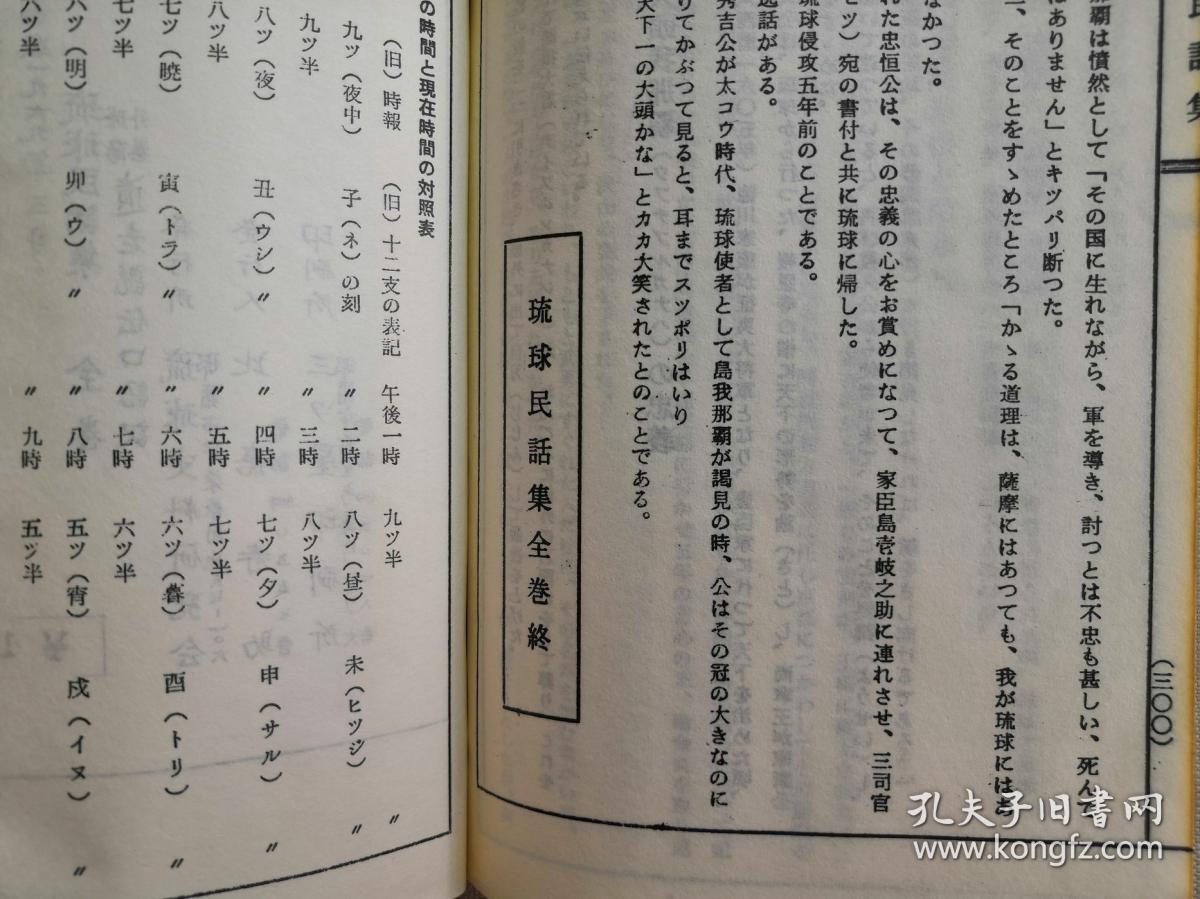 民話集
(三〇〇)
那覇は憤然として「その国に生れながら、軍を導き、討つとは不忠も甚しい、死んで
はありません」とキッパリ断つた。
、そのことをすゝめたところ「かゝる道理は、薩摩にはあつても、我が琉球にはあ
なかつた。
れた忠恒公は、その忠義の心をお賞めになつて、家臣島壱岐之助に連れさせ、三司官
セツ)宛の書付と共に琉球に帰した。
琉球侵攻五年前のことである。
逸話がある。
秀吉公が太コウ時代、琉球使者として島我那覇が謁見の時、公はその冠の大きなのに
りてかぶつて見ると、耳までスツポリはいり
天下一の大頭かな」とカカ大笑されたとのことである。
琉球民話集全巻終
の時間と現在時間の対照表
(旧)時報 (旧)十二支の表記 午後一時 九ツ半 〃
九ツ(夜中) 子(ネ)の刻 〃 二時 八ツ(昼) 未(ヒツジ) 〃
九ツ半 〃 三時 八ツ半
八ツ(夜) 丑(ウシ)〃 〃 四時 七ツ(夕) 申(サル) 〃
八ツ半 〃 五時 七ツ半
七ツ(暁) 寅(トラ)〃 〃 六時 六ツ(暮) 酉(トリ) 〃
七ツ半 〃 七時 六ツ半
六ツ(明) 卯(ウ)〃 〃 八時 五ツ(宵) 戌(イヌ) 〃
六ツ半 〃 九時 五ツ半
孔夫子旧书网
www.kongfz.com